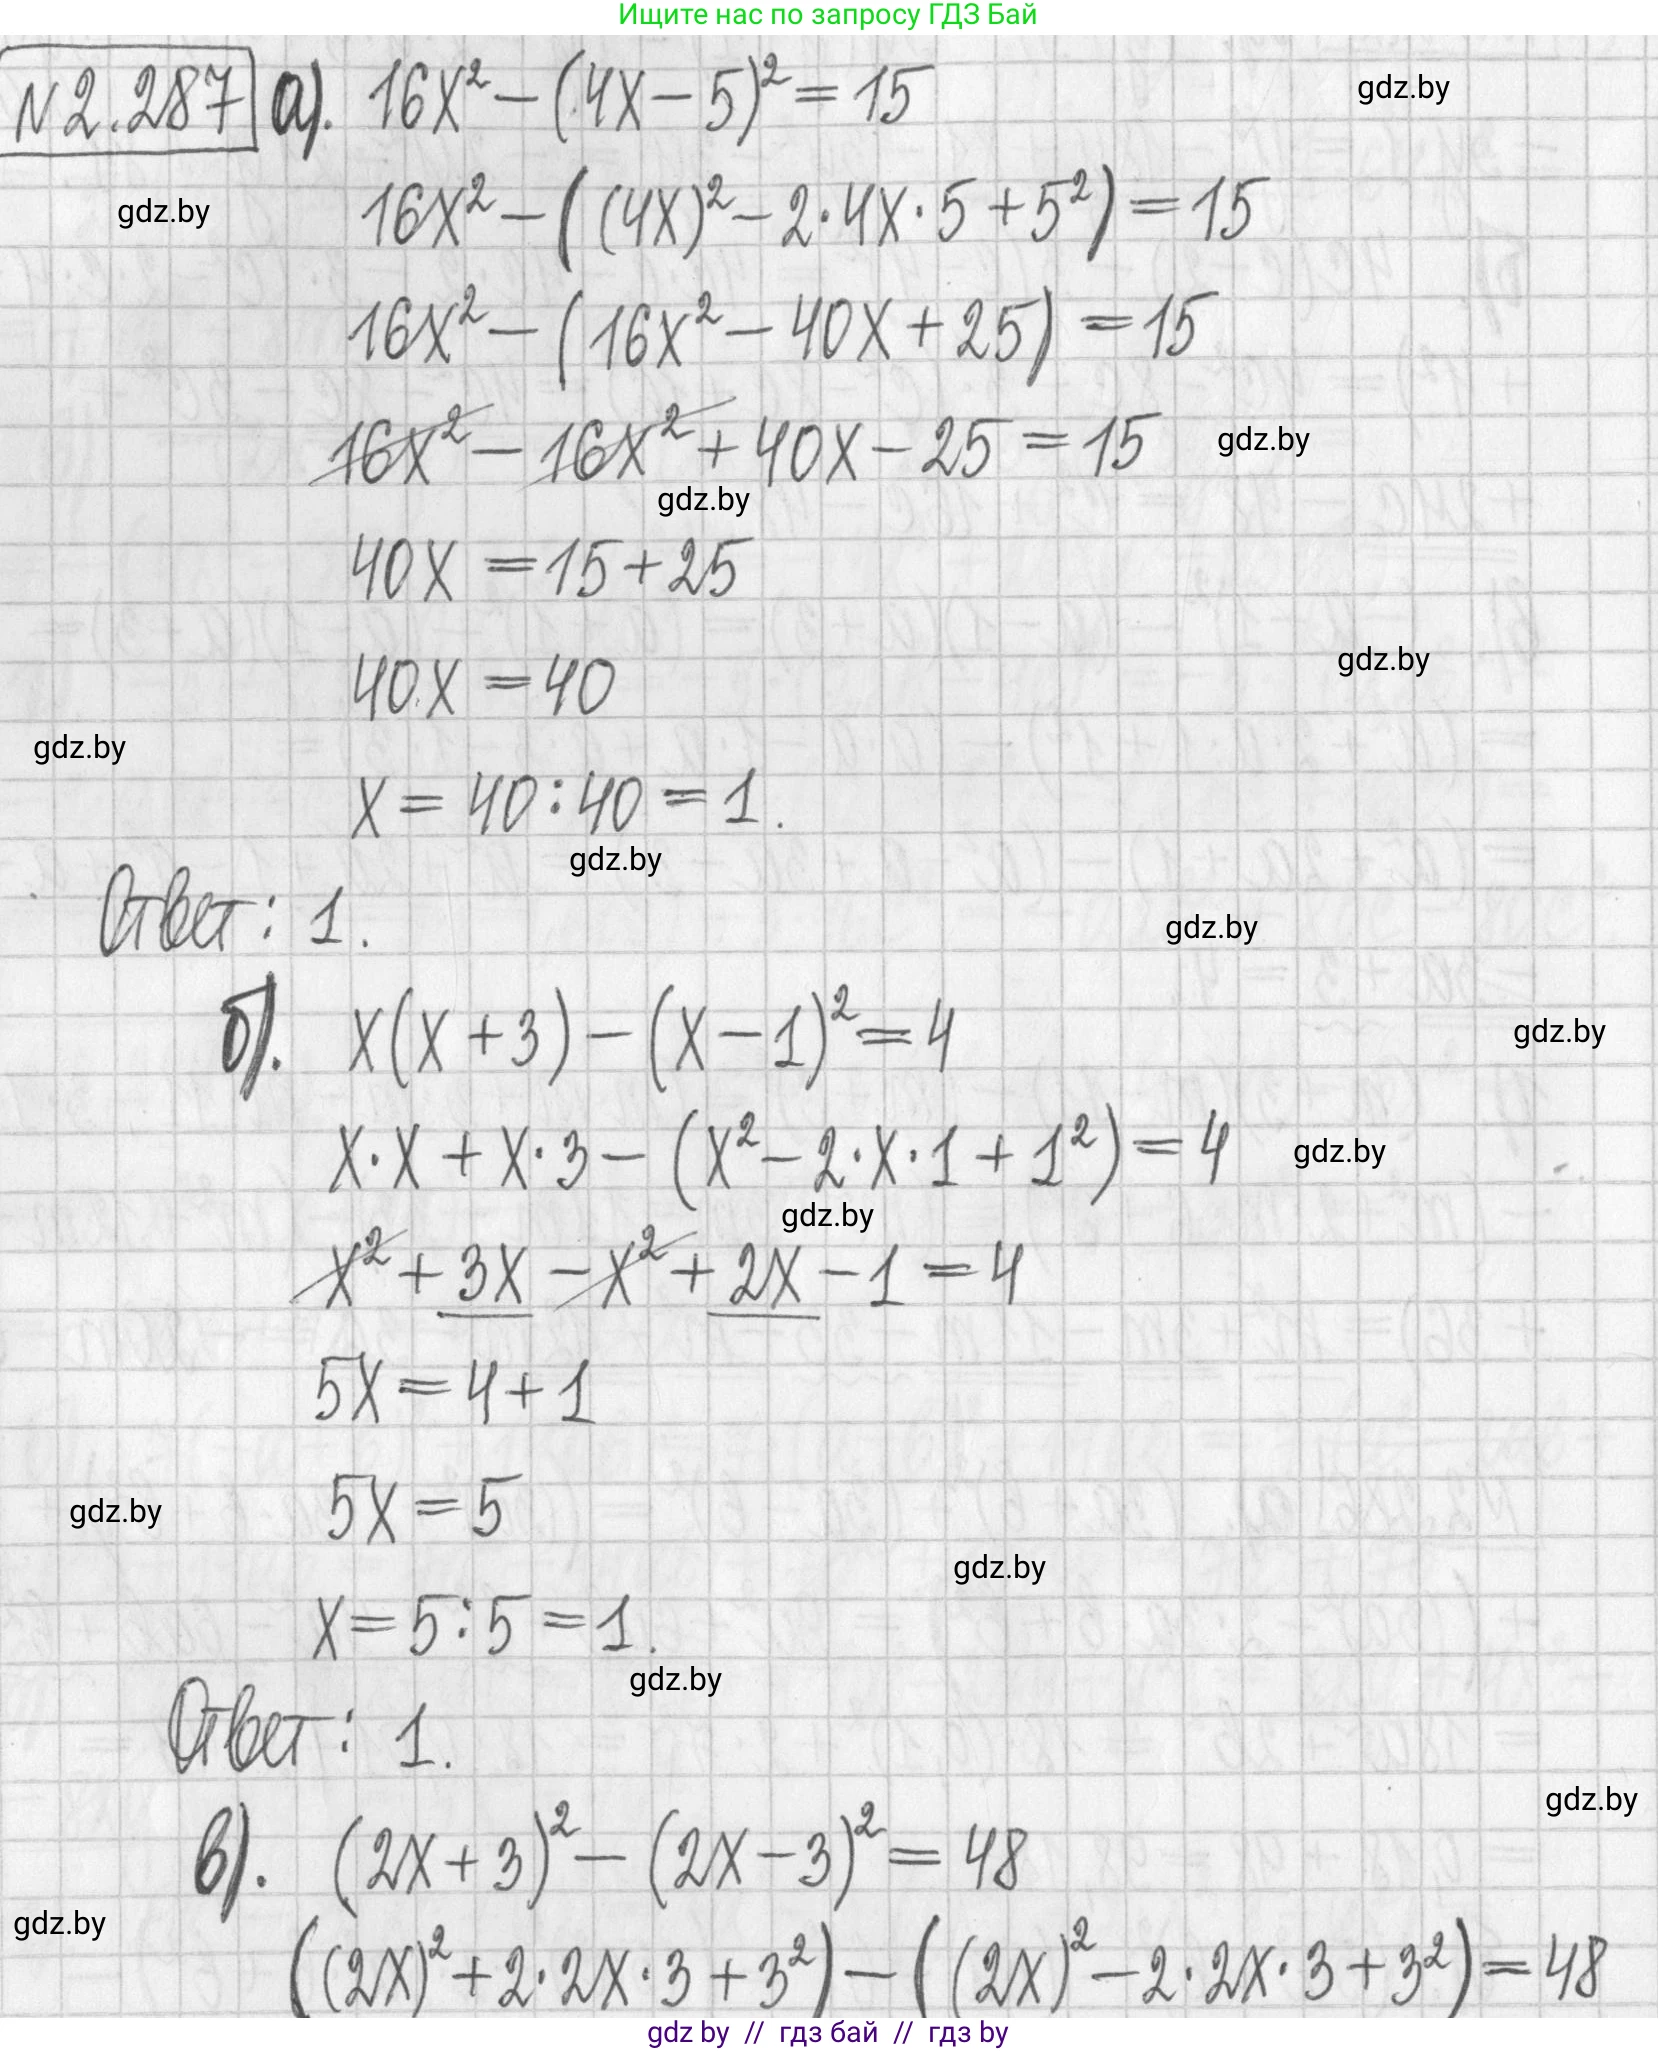 Ищите нас по запросу ГДЗ Бай
№2.287 а). 16x² − (4x − 5)² = 15
gdz.by
gdz.by
16x² − ((4x)² − 2·4x·5 + 5²) = 15
16x² − (16x² − 40x + 25) = 15
16x² − 16x² + 40x − 25 = 15
gdz.by
gdz.by
40x = 15 + 25
gdz.by
40x = 40
gdz.by
x = 40 : 40 = 1.
gdz.by
Ответ: 1.
gdz.by
б). x(x + 3) − (x − 1)² = 4
gdz.by
x·x + x·3 − (x² − 2·x·1 + 1²) = 4
gdz.by
gdz.by
x² + 3x − x² + 2x − 1 = 4
5x = 4 + 1
5x = 5
gdz.by
gdz.by
x = 5 : 5 = 1.
gdz.by
Ответ: 1.
gdz.by
в). (2x + 3)² − (2x − 3)² = 48
gdz.by
((2x)² + 2·2x·3 + 3²) − ((2x)² − 2·2x·3 + 3²) = 48
gdz by // гдз бай // гдз by